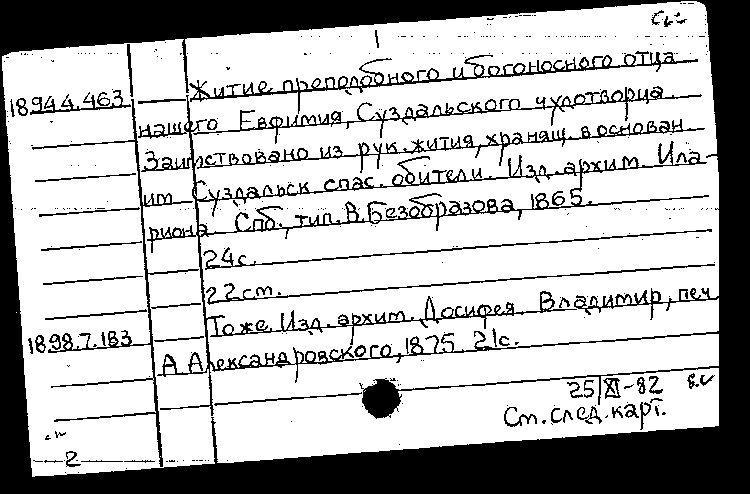 18944.463 Житие преподобного и богоносного отца
нашего Евфимия, Суздальского чудотворца.
Заимствовано из рук. жития, хранящ. в основан
им Суздальск. спас. обители. Изд. архим. Ила-
риона Спб., тип. В. Безобразова, 1865.
24с.
22см.
Тоже. Изд. архим. Досифея Владимир, печ
1898.7.183 А Александровского, 1875 21с.
25/XI-82
См. след. карт.
2